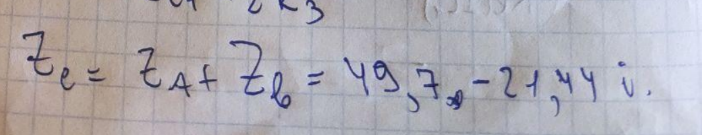 Z_e = Z_A + Z_B = 49,7 - 21,44 i.